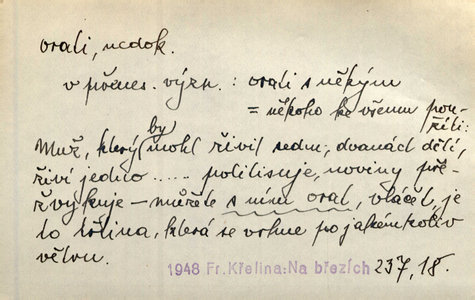 orati, nedok.
v přenes. význ. : orati s někým
= někoho ke všemu pou-
žíti:
Muž, který by mohl živit sedm, dvanáct dětí,
živí jedno ..... politisuje, noviny pře-
žvykuje – můžete s ním orat, vláčet, je
to třtina, která se vrhne po jakémkoliv
větru.
1948 Fr. Křelina: Na březích 237, 18.